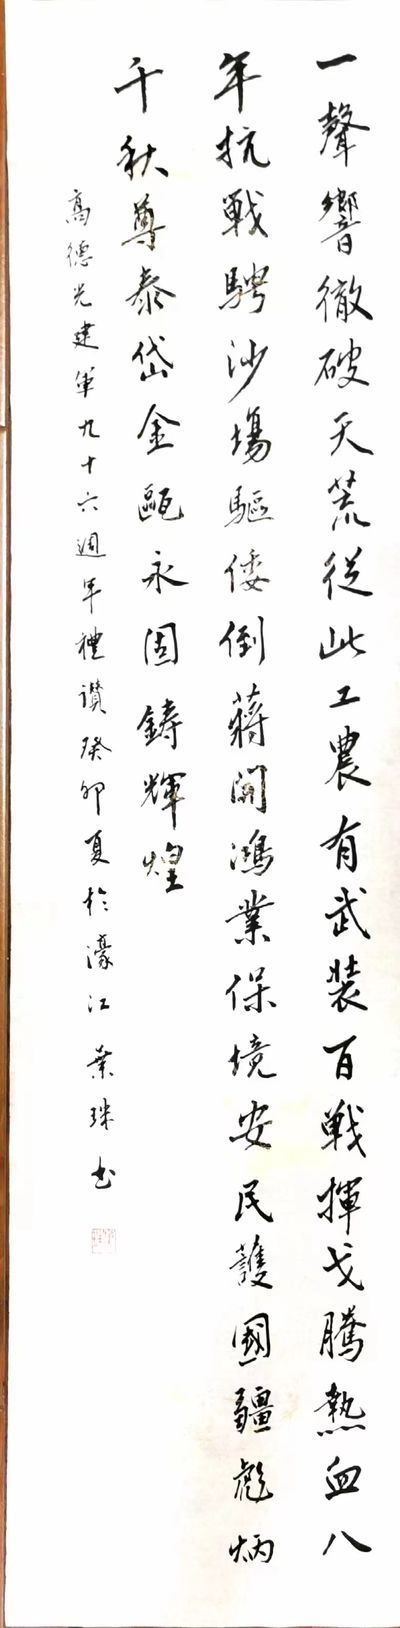 一聲響徹破天荒從此工農有武裝百戰揮戈騰熱血八
年抗戰騁沙場驅倭倒蔣開鴻業保境安民護國疆彪炳
千秋尊泰岱金甌永固鑄輝煌
高德光建軍九十六週年禮讚癸卯夏於濠江葉珠書